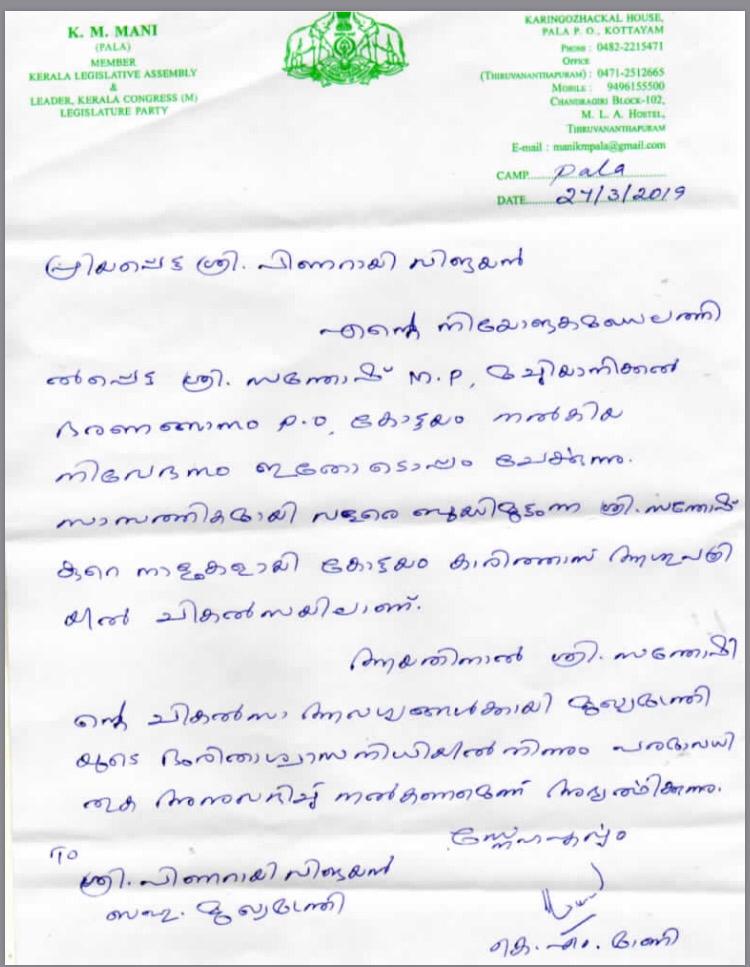 K. M. MANI
(PALA)
MEMBER
KERALA LEGISLATIVE ASSEMBLY
&
LEADER, KERALA CONGRESS (M)
LEGISLATURE PARTY
KARINGOZHACKAL HOUSE,
PALA P. O., KOTTAYAM
PHONE : 0482-2215471
OFFICE
(THIRUVANANTHAPURAM) : 0471-2512665
MOBILE : 9496155500
CHANDRAGIRI BLOCK-102,
M. L. A. HOSTEL,
THIRUVANANTHAPURAM
E-mail : manikmpala@gmail.com
CAMP Pala
DATE 27/3/2019
പ്രിയപ്പെട്ട ശ്രീ. പിണറായി വിജയൻ
എന്റെ നിയോജകമണ്ഡലത്തി
ൽപ്പെട്ട ശ്രീ. സന്തോഷ് M.P,
ഭരണങ്ങാനം P.O, കോട്ടയം നൽകിയ
നിവേദനം ഇതോടൊപ്പം ചേർക്കുന്നു.
സാമ്പത്തികമായി വളരെ ബുദ്ധിമുട്ടുന്ന ശ്രീ. സന്തോഷ്
കുറെ നാളുകളായി കോട്ടയം കാരിത്താസ് ആശുപത്രി
യിൽ ചികൽസയിലാണ്.
ആയതിനാൽ ശ്രീ. സന്തോഷി
ന്റെ ചികൽസാ ആവശ്യങ്ങൾക്കായി മുഖ്യമന്ത്രി
യുടെ ദുരിതാശ്വാസ നിധിയിൽ നിന്നും പരമാവധി
തുക അനുവദിച്ച് നൽകണമെന്ന് അഭ്യർത്ഥിക്കുന്നു.
സ്നേഹപൂർവ്വം
To
ശ്രീ. പിണറായി വിജയൻ
ബഹു. മുഖ്യമന്ത്രി
കെ. എം. മാണി